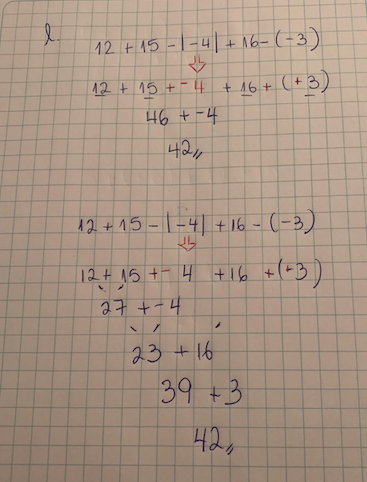 l.
12 + 15 - |-4| + 16 - (-3)
12 + 15 + -4 + 16 + (+3)
46 + -4
42,,
12 + 15 - |-4| + 16 - (-3)
12 + 15 + - 4 + 16 + (+3)
27 + -4
23 + 16
39 + 3
42,,